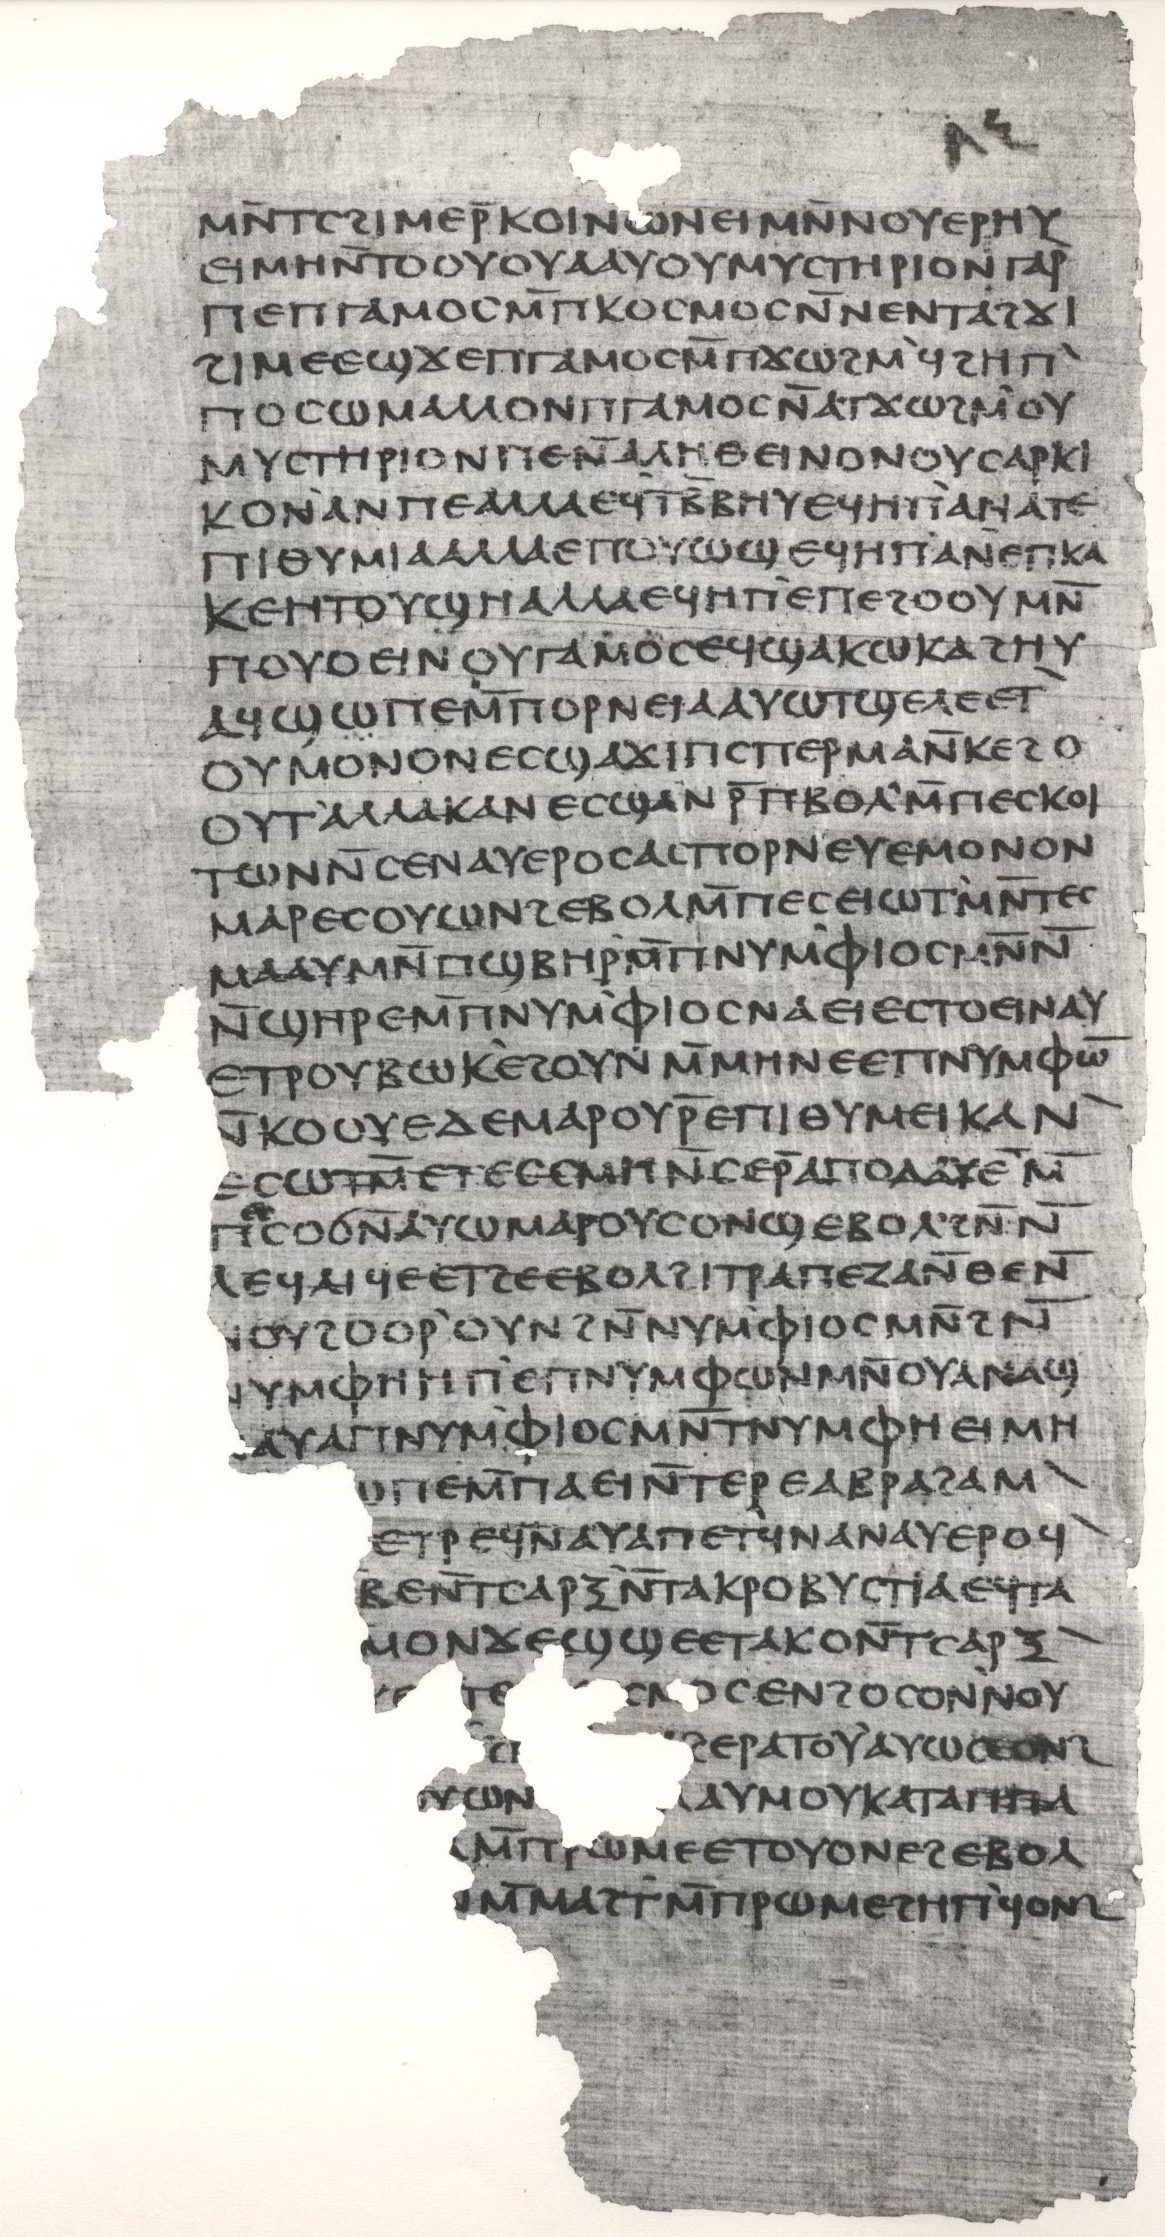 ⲡⲃ
ⲙⲛ̄ⲧⲥϩⲓⲙⲉⲣ̄ⲕⲟⲓⲛⲱⲛⲉⲓⲙⲛ̄ⲛⲟⲩⲉⲣⲏⲩ
ⲉⲓⲙⲏⲛ̄ⲧⲟⲟⲩⲟⲩⲁⲁⲩⲟⲩⲙⲩⲥⲧⲏⲣⲓⲟⲛⲅⲁⲣ
ⲡⲉⲡⲅⲁⲙⲟⲥⲙ̄ⲡⲕⲟⲥⲙⲟⲥⲛ̄ⲛⲉⲛⲧⲁϩϫⲓ
ϩⲓⲙⲉⲉϣϫⲉⲡⲅⲁⲙⲟⲥⲙ̄ⲡϫⲱϩⲙ̀ϥϩⲏⲡ`
ⲡⲟⲥⲱⲙⲁⲗⲗⲟⲛⲡⲅⲁⲙⲟⲥⲛ̄ⲁⲧϫⲱϩⲙ̀ⲟⲩ
ⲙⲩⲥⲧⲏⲣⲓⲟⲛⲡⲉⲛ̄ⲁⲗⲏⲑⲉⲓⲛⲟⲛⲟⲩⲥⲁⲣⲕⲓ
ⲕⲟⲛ̀ⲁⲛⲡⲉⲁⲗⲗⲁⲉϥⲧⲃ̄ⲃⲏⲩⲉϥⲏⲡ̀ⲁⲛⲁⲧⲉ
ⲡⲓⲑⲩⲙⲓⲁⲁⲗⲗⲁⲉⲡⲟⲩⲱϣⲉϥⲏⲡ̀ⲁⲛⲉⲡⲕⲁ
ⲕⲉⲏⲧⲟⲩϣⲏⲁⲗⲗⲁⲉϥⲏⲡ̀ⲉⲡⲉϩⲟⲟⲩⲙⲛ̄
ⲡⲟⲩⲟⲉⲓⲛⲟⲩⲅⲁⲙⲟⲥⲉϥϣⲁⲕⲱⲕⲁϩⲏⲩ
ⲁϥϣⲱⲡⲉⲙ̄ⲡⲟⲣⲛⲉⲓⲁⲁⲩⲱⲧϣⲉⲗⲉⲉⲧ`
ⲟⲩⲙⲟⲛⲟⲛⲉⲥϣⲁϫⲓⲡⲥⲡⲉⲣⲙⲁⲛ̄ⲕⲉϩⲟ
ⲟⲩⲧ̀ⲁⲗⲗⲁⲕⲁⲛⲉⲥϣⲁⲛⲣ̄ⲡⲃⲟⲗ̀ⲙ̄ⲡⲉⲥⲕⲟⲓ
ⲧⲱⲛⲛ̄ⲥⲉⲛⲁⲩⲉⲣⲟⲥⲁⲥⲡⲟⲣⲛⲉⲩⲉⲙⲟⲛⲟⲛ
ⲙⲁⲣⲉⲥⲟⲩⲱⲛϩⲉⲃⲟⲗⲙ̄ⲡⲉⲥⲉⲓⲱⲧ̀ⲙⲛ̄ⲧⲉⲥ
ⲙⲁⲁⲩⲙⲛ̄ⲡϣⲃⲏⲣ̀ⲙ̄ⲡⲛⲩⲙ̀ⲫⲓⲟⲥⲙⲛ̄ⲛ̄
ⲛ̄ϣⲏⲣⲉⲙ̄ⲡⲛⲩⲙ̀ⲫⲓⲟⲥⲛⲁⲉⲓⲉⲥⲧⲟⲉⲓⲛⲁⲩ
ⲉⲧⲣⲟⲩⲃⲱⲕ̀ⲉϩⲟⲩⲛⲙ̄ⲙⲏⲛⲉⲉⲡⲛⲩⲙⲫⲱ̄
ⲛ̄ⲕⲟⲟⲩⲉⲇⲉⲙⲁⲣⲟⲩⲣ̄ⲉⲡⲓⲑⲩⲙⲉⲓⲕⲁⲛ`
ⲉⲥⲱⲧⲙ̄ⲉⲧⲉⲥⲥⲙⲏⲛ̄ⲥⲉⲣ̄ⲁⲡⲟⲗⲁⲩⲉⲙ̄
ⲡⲉⲥⲥⲟϭⲛ̄ⲁⲩⲱⲙⲁⲣⲟⲩⲥⲟⲛϣⲉⲃⲟⲗ̀ϩⲛ̄ⲛ̄
ⲗⲉϥⲗⲓϥⲉⲉⲧϩⲉⲉⲃⲟⲗϩⲓⲧⲣⲁⲡⲉⲍⲁⲛ̄ⲑⲉⲛ̄
ⲛⲟⲩϩⲟⲟⲣ̀ⲟⲩⲛϩⲛ̄ⲛⲩⲙ̀ⲫⲓⲟⲥⲙⲛ̄ϩⲛ̄
ⲛⲩⲙⲫⲏⲏⲡ̀ⲉⲡⲛⲩⲙⲫⲱⲛⲙⲛ̄ⲟⲩⲁⲛⲁϣ
ⲛⲁⲩⲁⲡⲛⲩⲙ̀ⲫⲓⲟⲥⲙⲛ̄ⲧⲛⲩⲙⲫⲏⲉⲓⲙⲏ
ⲱⲡⲉⲙ̄ⲡⲁⲉⲓⲛ̄ⲧⲉⲣⲉⲁⲃⲣⲁϩⲁⲙ`
ⲉⲧⲣⲉϥⲛⲁⲩⲁⲡⲉⲧϥⲛⲁⲛⲁⲩⲉⲣⲟϥ`
ⲃⲉⲛ̄ⲧⲥⲁⲣⲝ̀ⲛ̄ⲧⲁⲕⲣⲟⲃⲩⲥⲧⲓⲁⲉϥⲧⲁ
ⲙⲟⲛϫⲉϣϣⲉⲉⲧⲁⲕⲟⲛ̄ⲧⲥⲁⲣⲝ`
ⲥⲙⲟⲥⲉⲛϩⲟⲥⲟⲛⲛⲟⲩ
ϩⲉⲣⲁⲧⲟⲩ̀ⲁⲩⲱⲥⲉⲟⲛϩ
ⲩⲱⲛ ⲁⲩⲙⲟⲩⲕⲁⲧⲁⲡⲡⲁ
ⲙ̄ⲡⲣⲱⲙⲉⲉⲧⲟⲩⲟⲛⲉϩⲉⲃⲟⲗ
ⲙ̄ⲙⲁϩⲧ̀ⲙ̄ⲡⲣⲱⲙⲉϩⲏⲡ̀ϥⲟⲛϩ